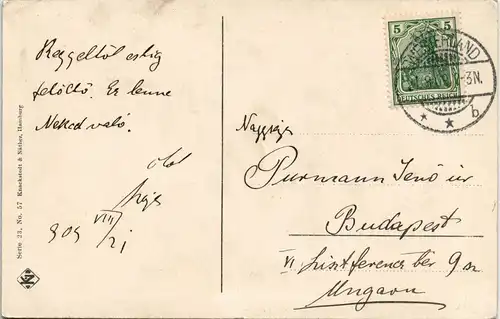 Reggeltől estig
fölötlő. Ez lenne
Neked való.
ölel
909 VIII/21
Serie 23, No. 57 Knackstedt & Näther, Hamburg
5 5
DEUTSCHES REICH
3N.
* * b
Nagyságos
Purmann Jenő úr
Budapest
VI Liszt ferencz tér 9 sz
Ungarn